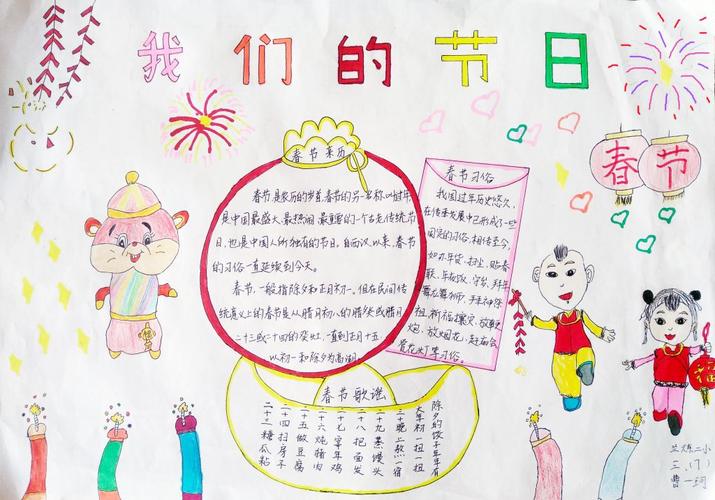 我们的节日
春节
春节来历
春节,是农历的岁首,春节的另一名称叫过年,
是中国最盛大、最热闹、最重要的一个古老传统节
日,也是中国人所独有的节日。自西汉以来,春节
的习俗一直延续到今天。
春节,一般指除夕和正月初一。但在民间传
统意义上的春节是从腊月初八的腊祭或腊月
二十三或二十四的祭灶,一直到正月十五,
以初一和除夕为高潮。
春节习俗
我国过年历史悠久,
在传承发展中已形成了一些
固定的习俗,相传至今,
如办年货、扫尘、贴春
联、年夜饭、守岁、拜年
舞龙舞狮、拜神祭
祖、祈福攘灾、放鞭
炮、放烟花、赶庙会
赏花灯等习俗。
春节歌谣
除夕的饺子年年有
大年初一扭一扭
三十晚上熬一宿
二十九蒸馒头
二十八把面发
二十七宰年鸡
二十六炖猪肉
二十五做豆腐
二十四扫房子
二十三糖瓜粘
福
兰炼二小
三、(1)
曹一珂